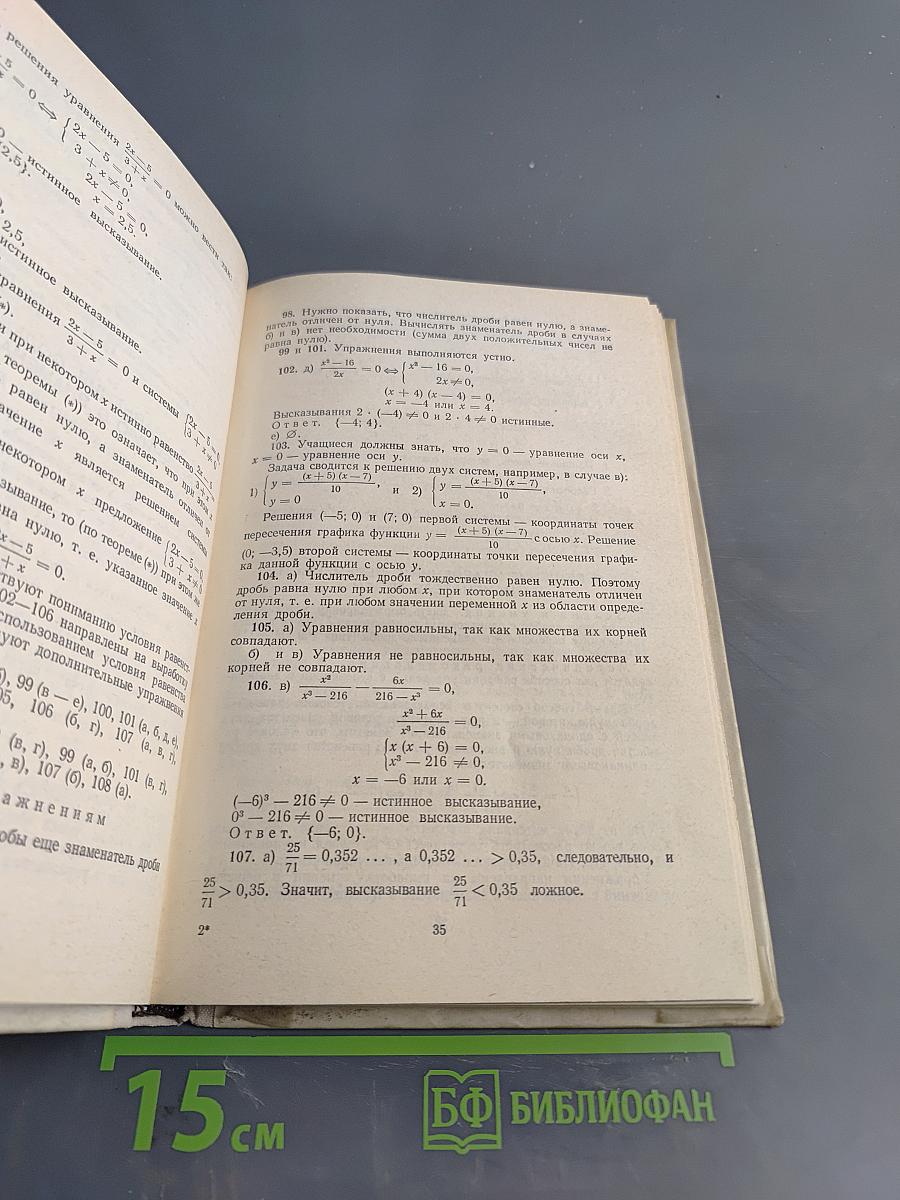 решения уравнения 2x — 5 / 3 + x = 0 можно вести так:
= 0 ⇔ { 2x — 5 = 0,
3 + x ≠ 0,
2x — 5 = 0,
x = 2,5.
— истинное высказывание.
{2,5}.
2,5,
истинное высказывание.
уравнения 2x — 5 / 3 + x = 0 и системы { 2x — 5 = 0,
3 + x ≠ 0
(*).
при некотором x истинно равенство 2x — 5 / 3 + x
теоремы (*)) это означает, что при этом x
равен нулю, а знаменатель отличен от
значение x является решением системы
некотором x предложение { 2x — 5 = 0,
3 + x ≠ 0
то (по теореме (*)) при этом же
нулю, т. е. указанное значение x
= 0.
пониманию условия равенст-
02—106 направлены на выработку
использованием условия равенства
дополнительные упражнения
99 (в — е), 100, 101 (а, б, д, е),
106 (б, г), 107 (а, в, г),
(в, г), 99 (а, б), 101 (в, г),
в), 107 (б), 108 (а).
обы еще знаменатель дроби
98. Нужно показать, что числитель дроби равен нулю, а знаме-
натель отличен от нуля. Вычислять знаменатель дроби в случаях
б) и в) нет необходимости (сумма двух положительных чисел не
равна нулю).
99 и 101. Упражнения выполняются устно.
102. д) x² — 16 / 2x = 0 ⇔ { x² — 16 = 0,
2x ≠ 0,
(x + 4) (x — 4) = 0,
x = —4 или x = 4.
Высказывания 2 · (—4) ≠ 0 и 2 · 4 ≠ 0 истинные.
Ответ. {—4; 4}.
е) ∅.
103. Учащиеся должны знать, что y = 0 — уравнение оси x,
x = 0 — уравнение оси y.
Задача сводится к решению двух систем, например, в случае в):
1) { y = (x + 5) (x — 7) / 10, и 2) { y = (x + 5) (x — 7) / 10,
y = 0 x = 0.
Решения (—5; 0) и (7; 0) первой системы — координаты точек
пересечения графика функции y = (x + 5) (x — 7) / 10 с осью x. Решение
(0; —3,5) второй системы — координаты точки пересечения графи-
ка данной функции с осью y.
104. а) Числитель дроби тождественно равен нулю. Поэтому
дробь равна нулю при любом x, при котором знаменатель отличен
от нуля, т. е. при любом значении переменной x из области опреде-
ления дроби.
105. а) Уравнения равносильны, так как множества их корней
совпадают.
б) и в) Уравнения не равносильны, так как множества их
корней не совпадают.
106. в) x² / x³ — 216 — 6x / 216 — x³ = 0,
x² + 6x / x³ — 216 = 0,
{ x (x + 6) = 0,
x³ — 216 ≠ 0,
x = —6 или x = 0.
(—6)³ — 216 ≠ 0 — истинное высказывание,
0³ — 216 ≠ 0 — истинное высказывание.
Ответ. {—6; 0}.
107. а) 25 / 71 = 0,352 ... , а 0,352 ... > 0,35, следовательно, и
25 / 71 > 0,35. Значит, высказывание 25 / 71 < 0,35 ложное.
2* 35
15 см БФ БИБЛИОФАН